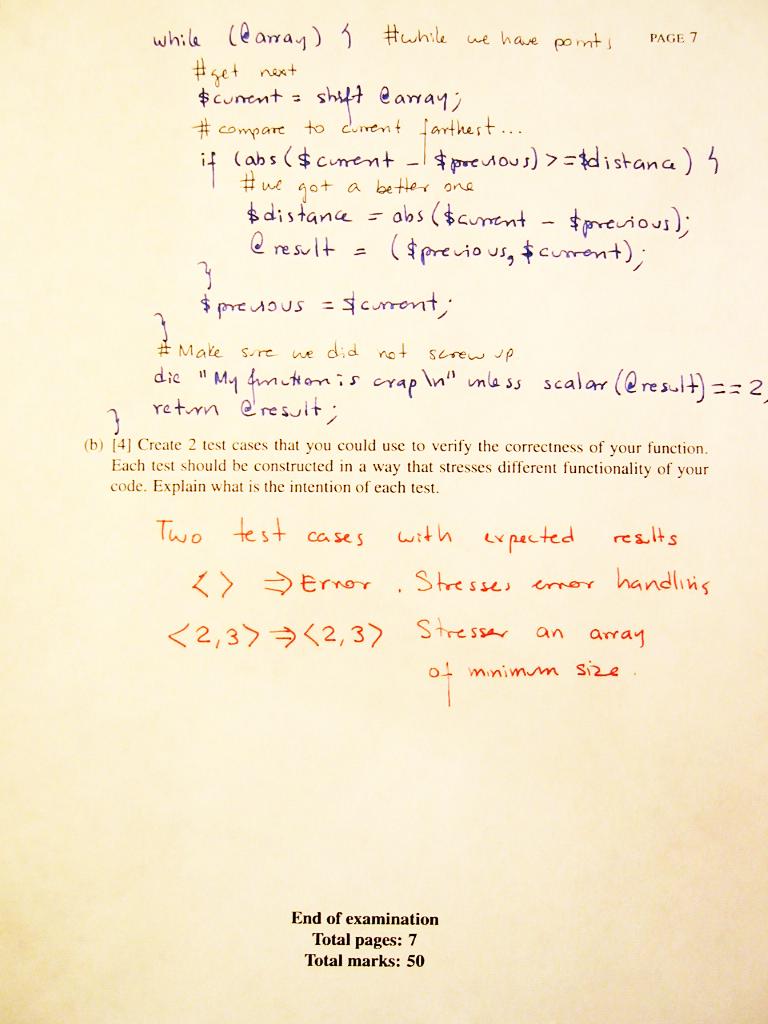 while (@array) { #while we have points
PAGE 7
#get next
$current = shift @array;
# compare to current farthest...
if (abs($current - $previous) >= $distance) {
#we got a better one
$distance = abs($current - $previous);
@result = ($previous, $current);
}
$previous = $current;
}
# Make sure we did not screw up
die "My function is crap\n" unless scalar(@result) == 2;
return @result;
}
(b) [4] Create 2 test cases that you could use to verify the correctness of your function.
Each test should be constructed in a way that stresses different functionality of your
code. Explain what is the intention of each test.
Two test cases with expected results
< > ⇒ Error. Stresses error handling
<2,3> ⇒ <2,3> Stresses an array
of minimum size.
End of examination
Total pages: 7
Total marks: 50